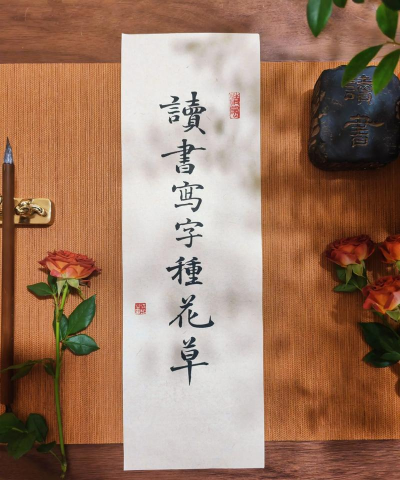 讀書寫字種花草
讀書